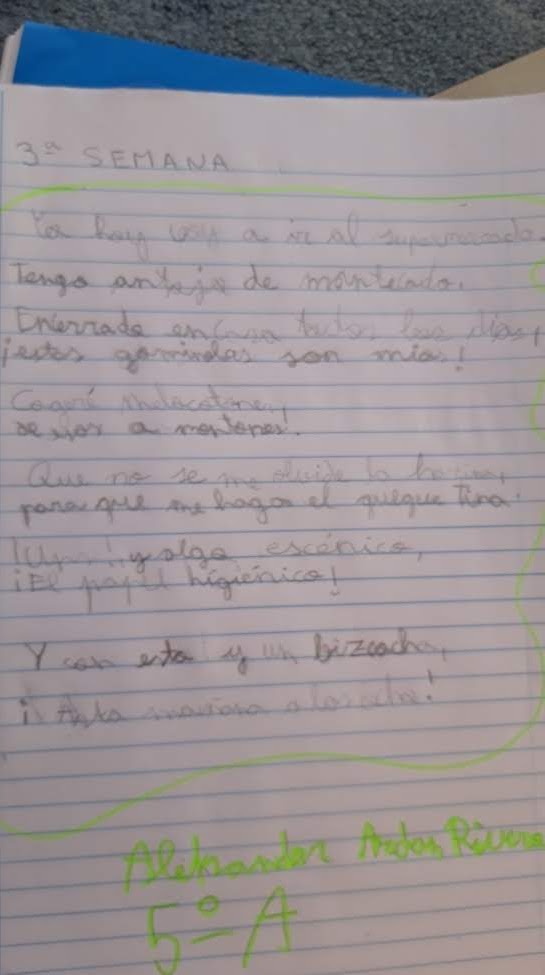 3ª SEMANA
Yo hoy voy a ir al supermercado.
Tengo antojo de montecado.
Encerrada en casa todos los días,
¡estas gominolas son mías!
Cogeré melocotones,
a montones.
Que no se me olvide la harina,
para que me haga el queque Tina.
y algo escénico,
¡El papel higiénico!
Y con esto y un bizcocho,
¡ mañana a las ocho!
5º A